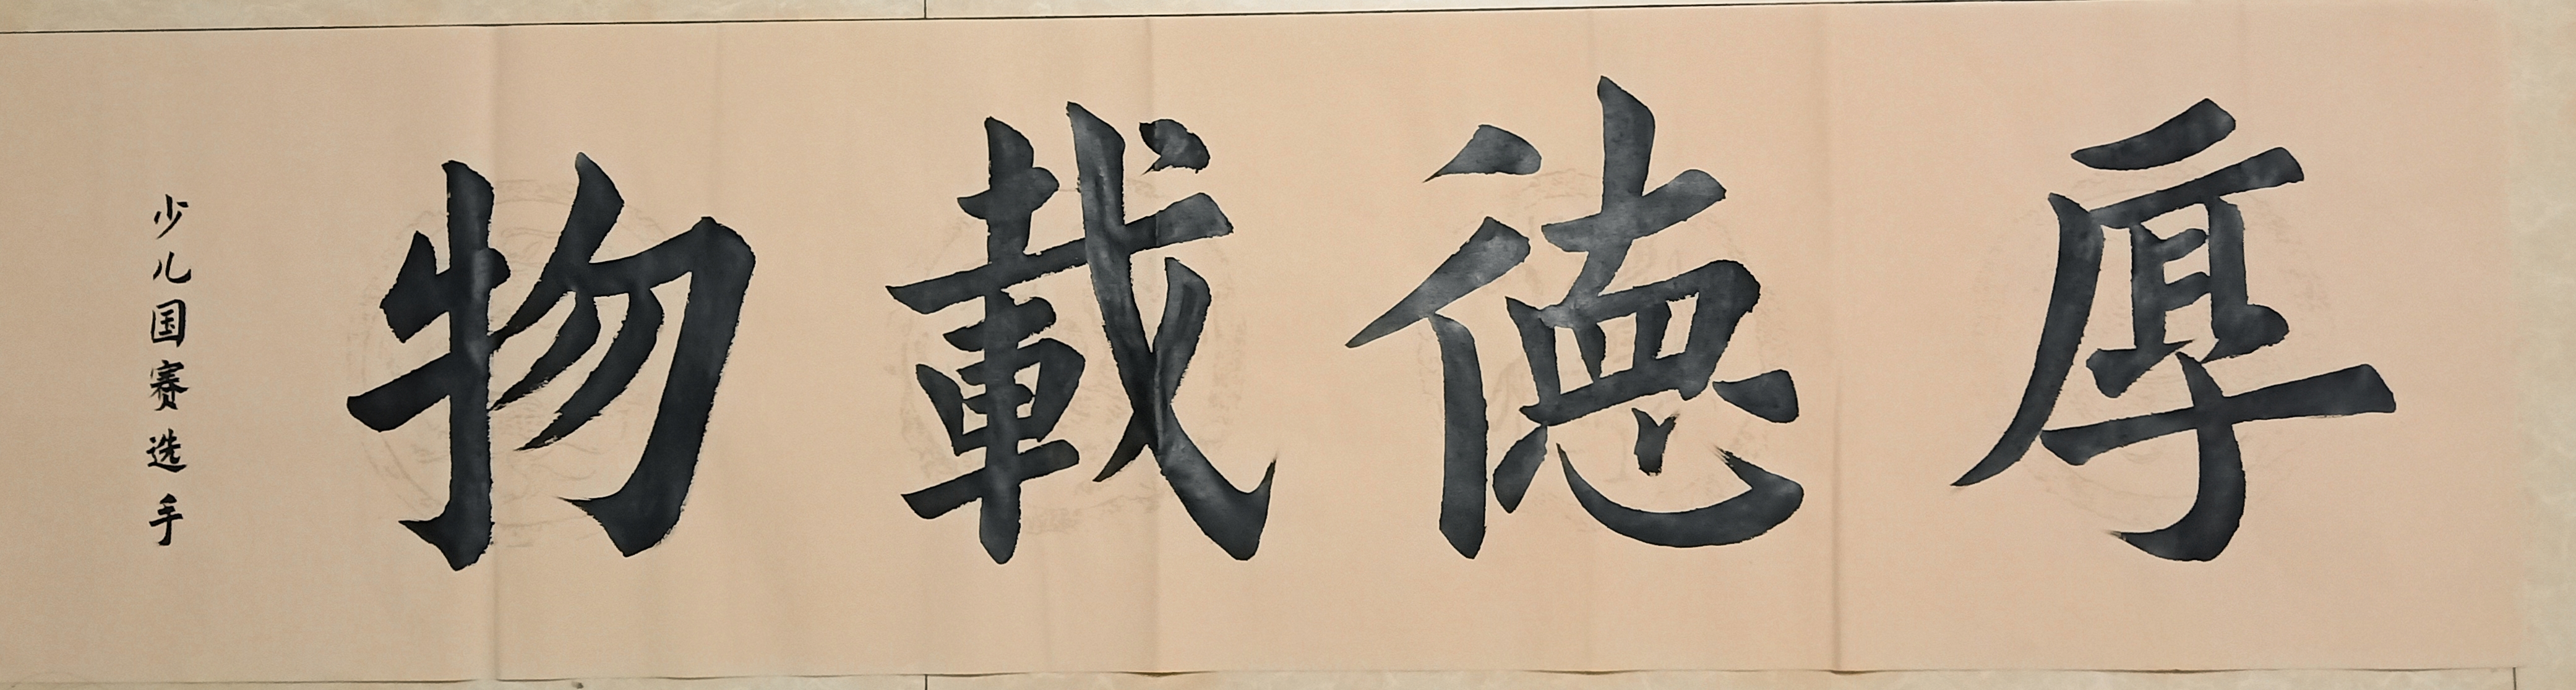 厚德載物
少儿国赛选手